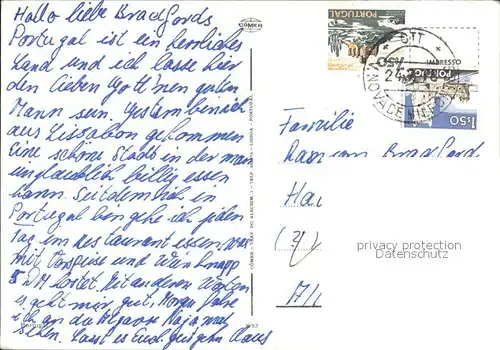 Hallo liebe Bradfords
Portugal ist ein herrliches
Land und ich lasse hier
den lieben Gott 'nen guten
Mann sein. Gestern bin ich
aus Lissabon gekommen
Eine schöne Stadt in der man
unglaublich billig essen
kann. Seitdem ich in
Portugal bin gehe ich jeden
Tag im Restaurant essen, was
mit Vorspeise und Wein knapp
5 DM kostet. Mit anderen Worten
es geht mir gut. Morgen fahre
ich an die Algarve Naja mal
sehen. Lasst es Euch gut gehn Claus
CÓMER
PORTUGAL
CTT
IMPRESSO
24
NOVA DE
PORTUGAL
1$50
Familie
Bradford
privacy protection
Datenschutz